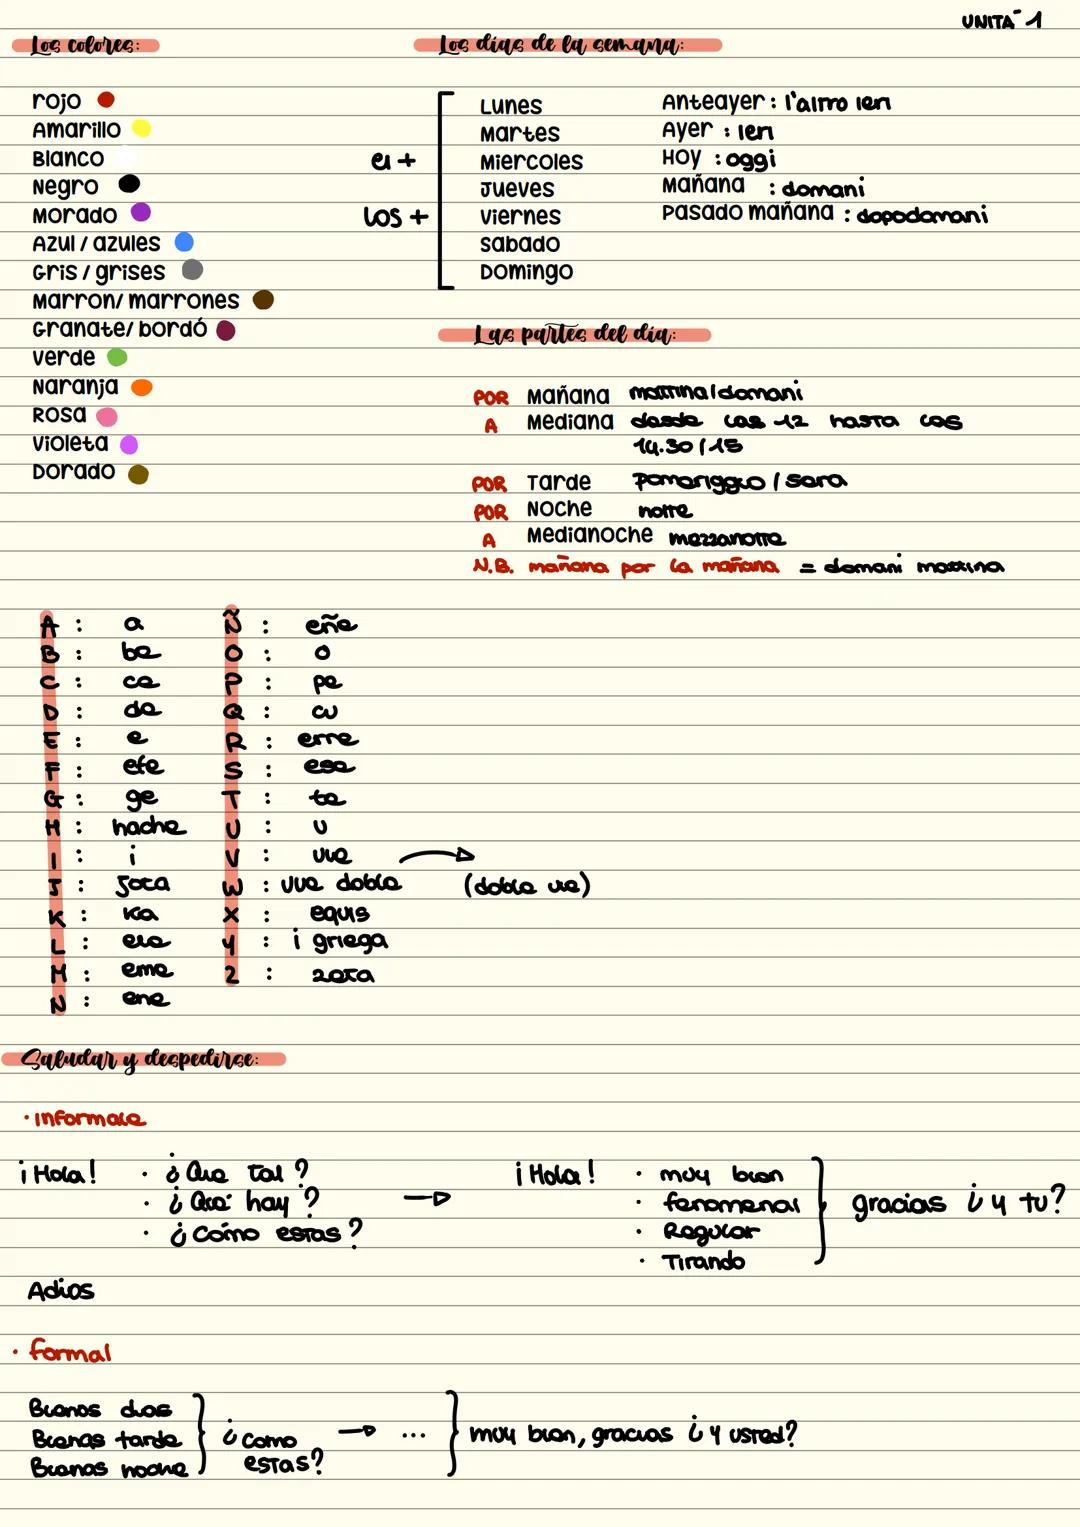 UNITA' 1
Los colores:
rojo
Amarillo
Blanco
Negro
Morado
Azul / azules
Gris / grises
Marron/ marrones
Granate/ bordó
Verde
Naranja
Rosa
Violeta
Dorado
Los días de la semana:
el +
los +
Lunes
Martes
Miercoles
Jueves
Viernes
Sabado
Domingo
Anteayer : l'altro ieri
Ayer : ieri
Hoy : oggi
Mañana : domani
Pasado mañana : dopodomani
Las partes del día:
POR Mañana mattina/domani
A Mediana desde las 12 hasta las
14.30 / 15
POR Tarde pomeriggio / sera
POR Noche notte
A Medianoche mezzanotte
N.B. mañana por la mañana = domani mattina
A : a
B : be
C : ce
D : de
E : e
F : efe
G : ge
H : hache
I : i
J : jota
K : ka
L : ele
M : eme
N : ene
Ñ : eñe
O : o
P : pe
Q : cu
R : erre
S : ese
T : te
U : u
V : uve
W : uve doble (doble ve)
X : equis
Y : i griega
Z : zeta
Saludar y despedirse:
· informale
¡Hola!
· ¿Que tal?
· ¿Qué hay?
· ¿Cómo estas?
¡Hola!
· muy bien
· fenomenal
· Regular
· Tirando
gracias ¿y tu?
Adios
· formal
Buenos dias
Buenas tarde
Buenas noche
¿como
estas?
...
muy bien, gracias ¿y usted?